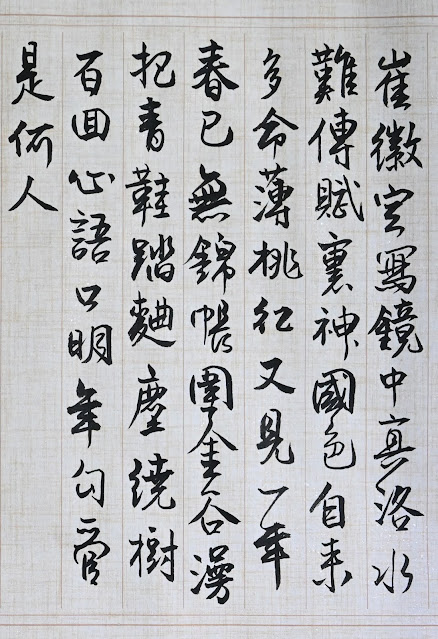 崔徽空寫鏡中真洛水
難傳賦裏神國色自来
多命薄桃紅又見一年
春已無錦帳圍金谷漫
把青鞋踏麯塵繞樹
百回心語口明年勾管
是何人